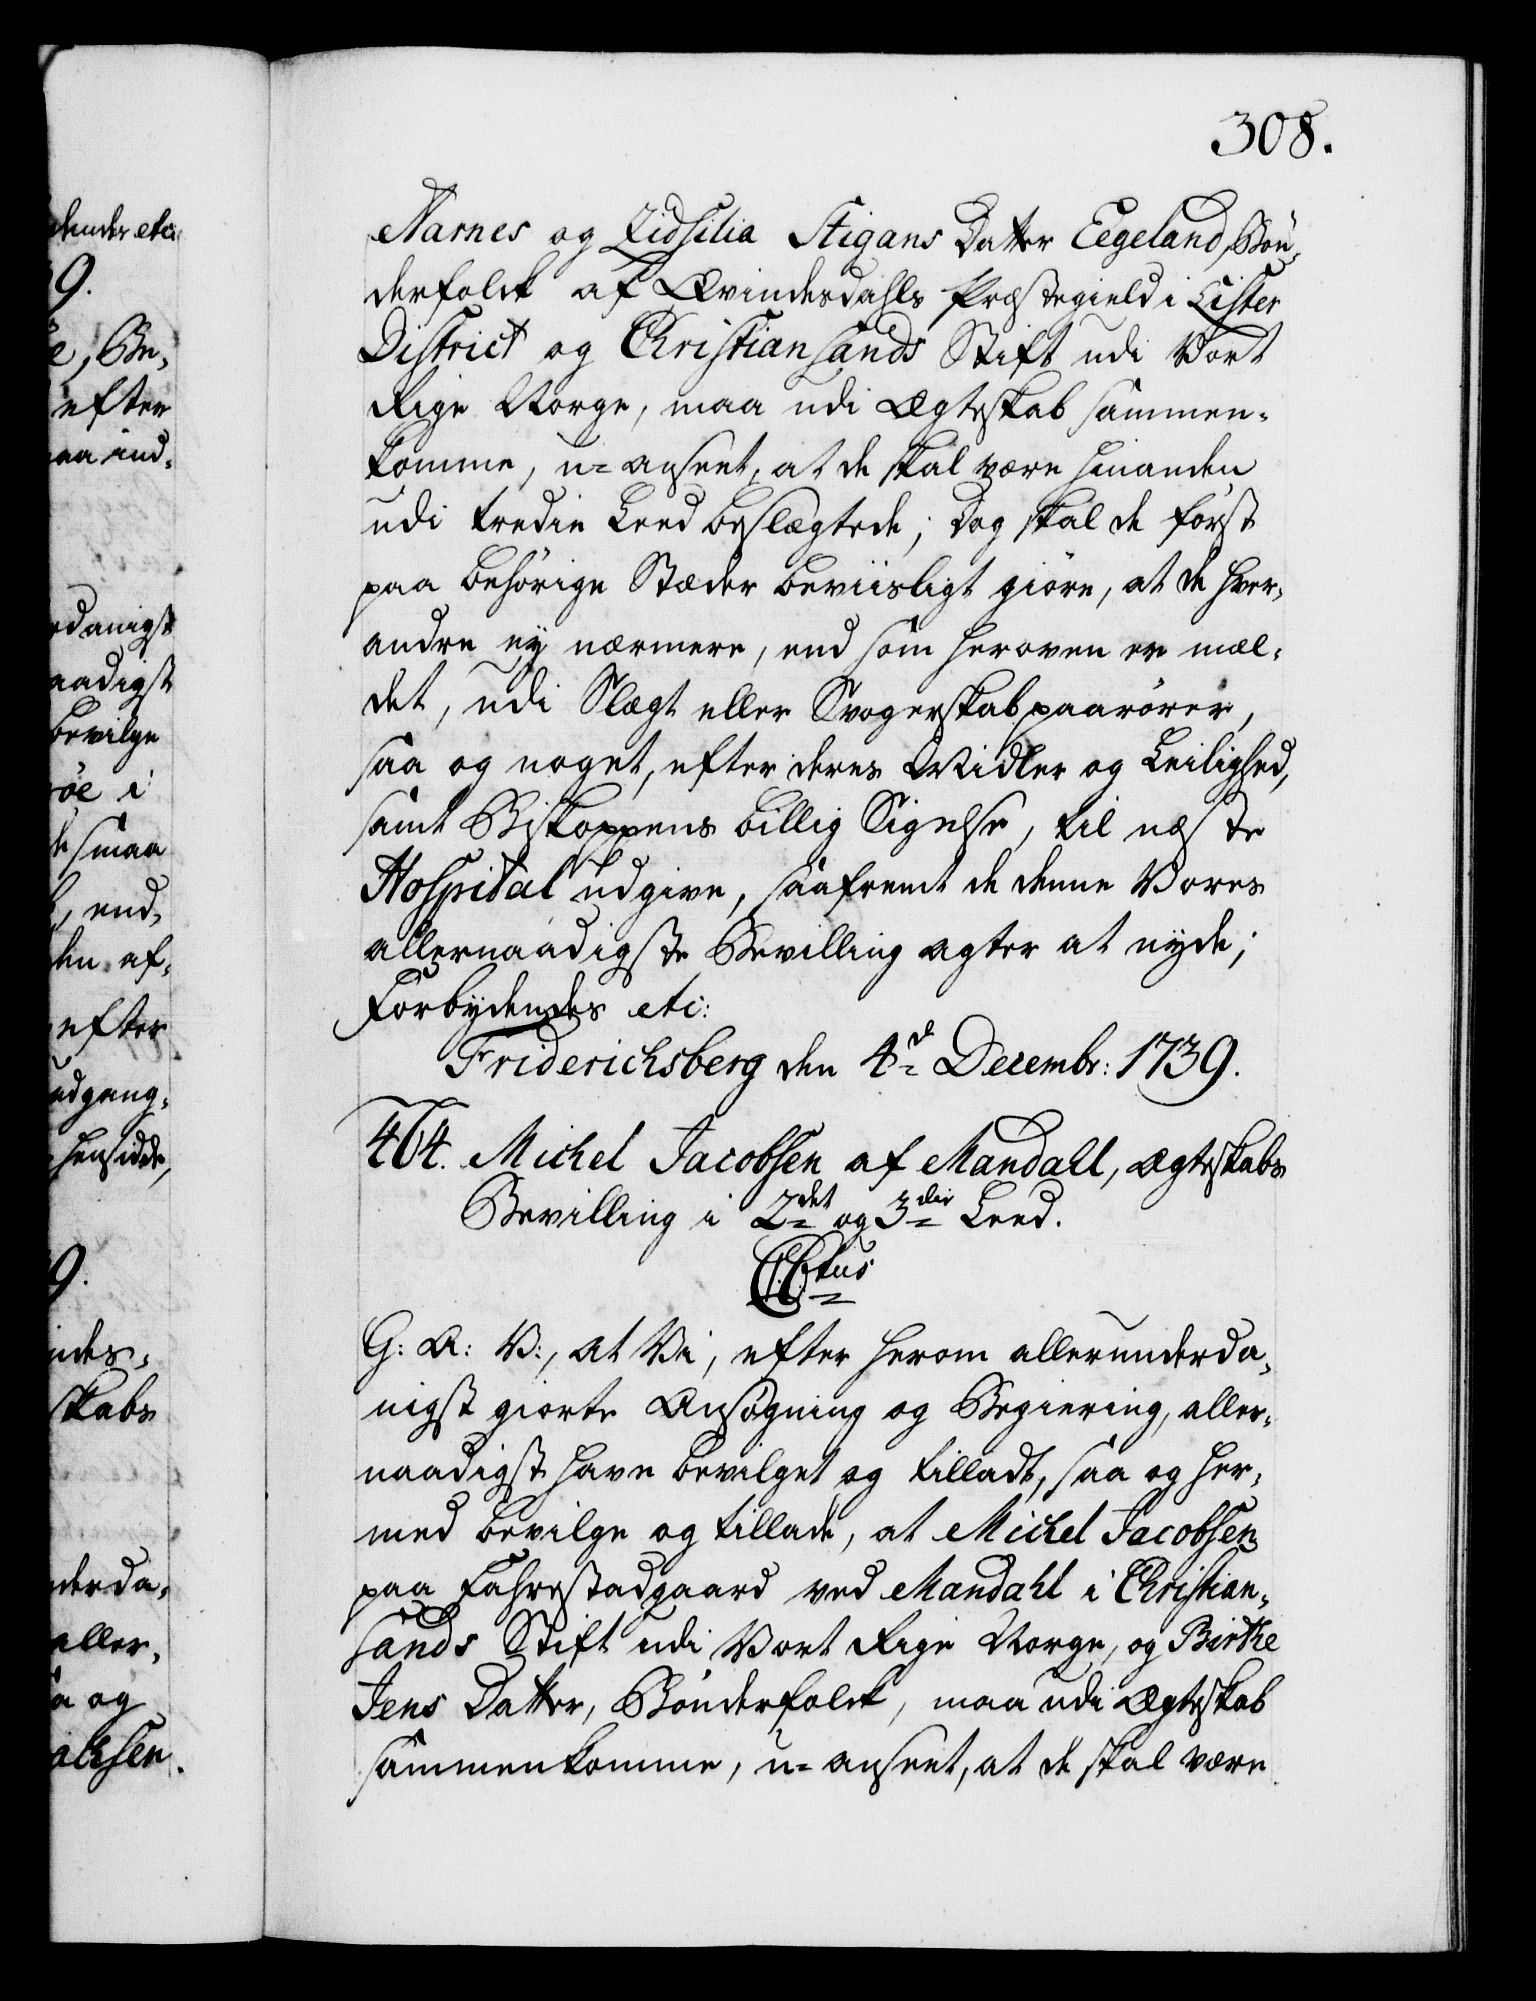 308.
Narnes og Zidsilia Stigans Datter Eegeland, Bön-
derfolck af Qvindesdahls Præstegield i Lister
District og Christiansands Stift udi Vort
Rige Norge, maa udi Ægteskab sammen-
komme, u-anseet, at de skal være hinanden
udi tredie Leed beslægtede; Dog skal de först
paa behörige Stæder beviisligt giöre, at de hver-
andre ey nærmere, end som heroven er mel-
det, udi Slægt eller Svogerskab paarörer,
saa og noget, efter deres Midler og Leilighed,
samt Biskoppens billig Sigelse, til næste
Hospital udgive, saafremt de denne Vores
allernaadigste Bevilling agter at nyde;
Forbydendes etc:
Friderichsberg den 4de Decembr: 1739.
464. Michel Jacobsen af Mandall, Ægteskabs
Bevilling i 2det og 3die Leed.
C 6tus
G: A: V:, at Vi, efter herom allerunderda-
nigst giorte Ansögning og Begiering, aller-
naadigst have bevilget og tilladt, saa og her-
med bevilge og tillade, at Michel Jacobsen
paa Fahrestadgaard ved Mandahl i Christian-
sands Stift udi Vort Rige Norge, og Birthe
Jens Datter, Bönderfolck, maa udi Ægteskab
sammenkomme, u-anseet, at de skal være
dendes etc:
9.
e, Be-
efter
aa ind-
rdanigst
aadigst
bevilge
öe i
de smaa
, end-
den af-
efter
udgang-
hensidde,
9.
ndes-
skabs
derda-
aller-
a og
achsen.